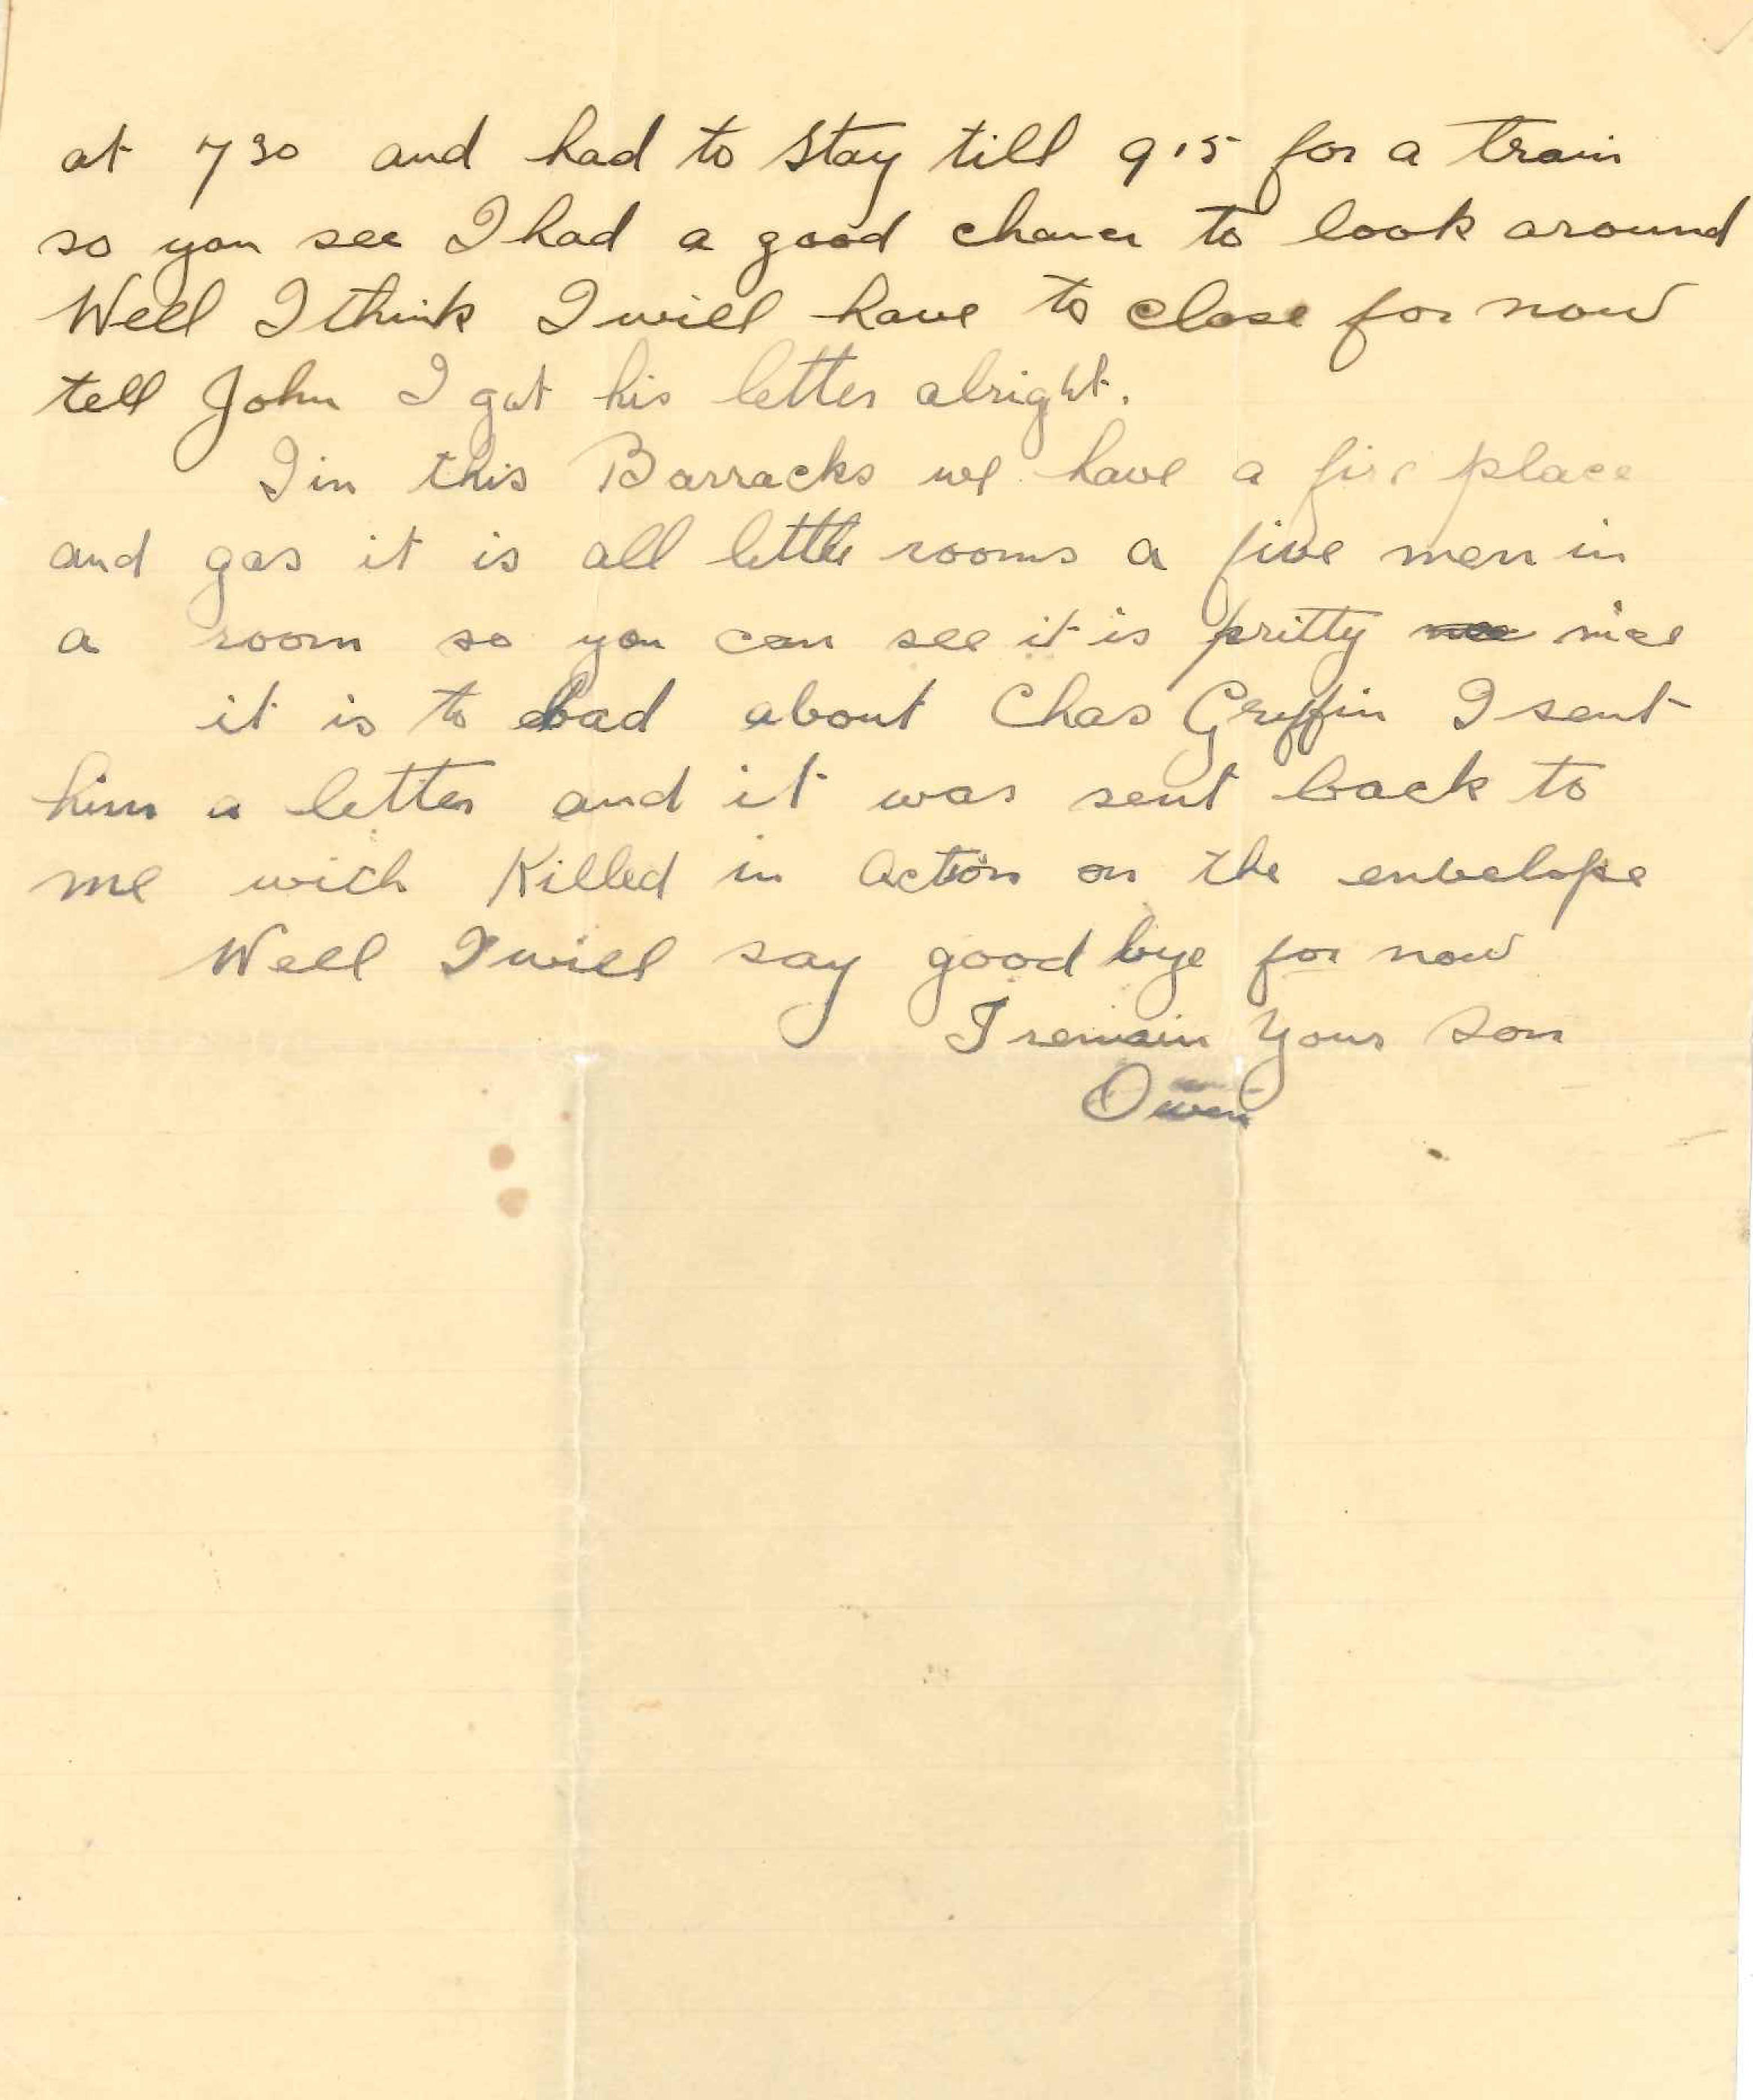 at 7 30 and had to stay till 9 15 for a train
so you see I had a good chance to look around
Well I think I will have to close for now
tell John I got his letter alright.
I in this Barracks we have a fire place
and gas it is all little rooms a five men in
a room so you can see it is pritty nice
it is to bad about Chas Griffin I sent
him a letter and it was sent back to
me with Killed in Action on the envelope
Well I will say good bye for now
I remain Your Son
Owen